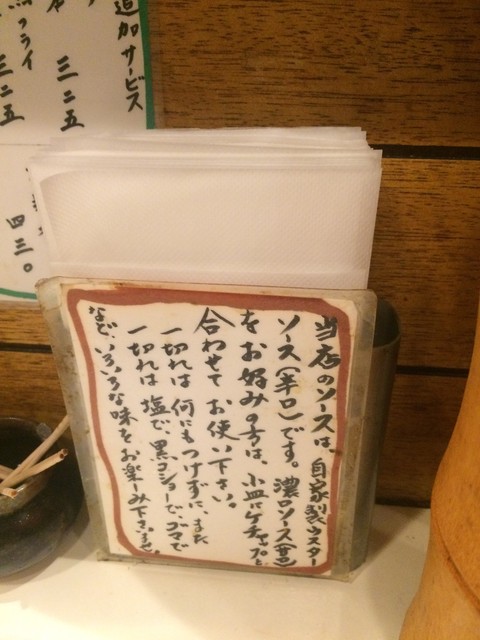 当店のソースは、自家製ウスター
ソース(辛口)です。濃口ソース(甘口)
をお好みの方は、小皿にケチャップと
合わせて お使い下さい。
一切れは 何にもつけずに、また
一切れは 塩で、黒コショーで、ゴマで
など、いろいろな味をお楽しみ下さいませ。
追加サービス
三二五
フライ
三二五
四三〇